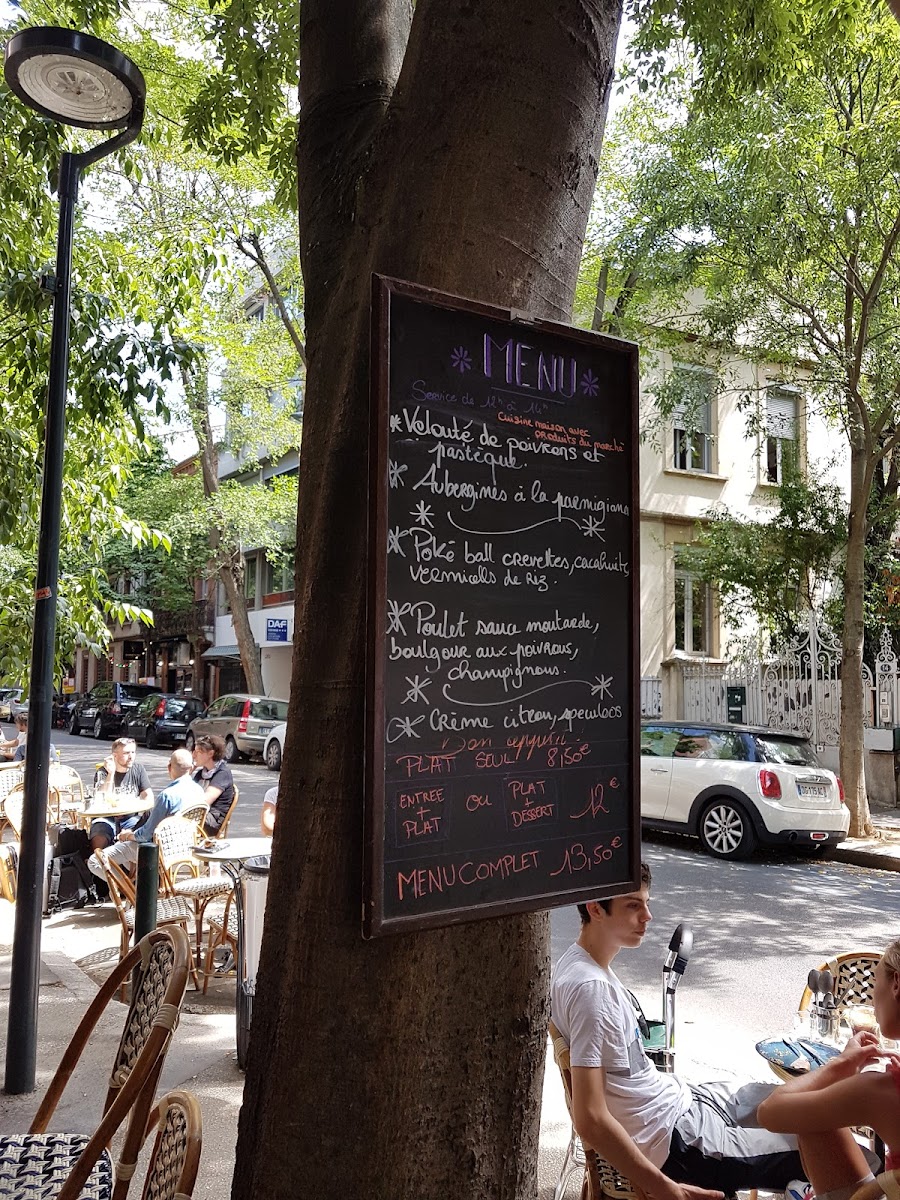 MENU
Service de 12h à 14h
Cuisine maison avec
produits du marché
Velouté de poivrons et
pastèque.
Aubergines à la parmigiana
Poké ball crevettes, cacahuits,
vermicells de Riz.
Poulet sauce moutarde,
boulgour aux poivrons,
champignons.
Crème citron, speculoos
Bon appétit!
PLAT SEUL: 8,50€
ENTREE + PLAT ou PLAT + DESSERT 12€
MENU COMPLET 13,50€
DAF